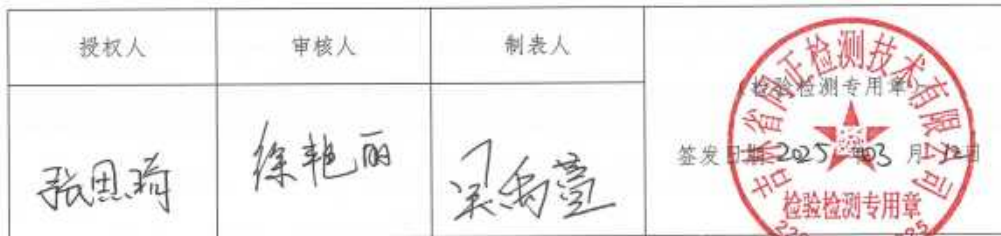 授权人 审核人 制表人
(检验检测专用章)
张思琦 徐艳丽
签发日期 2025 年 03 月 12 日
吉林省同正检测技术有限公司
检验检测专用章